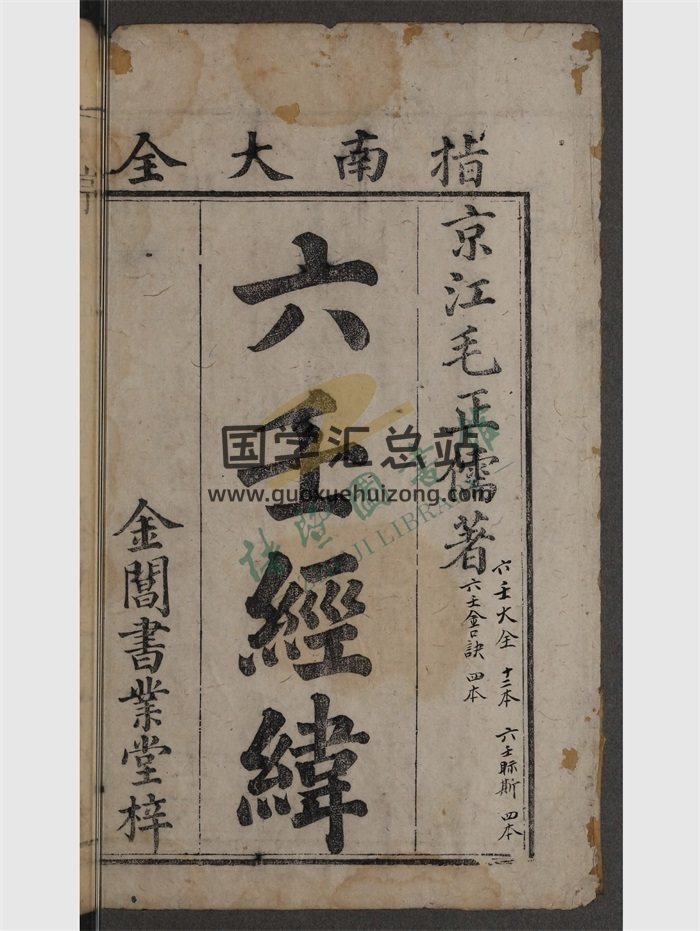 指南大全
京江毛正儒著
六壬大全 十二本
六壬金口訣 四本
六壬䀼斯 四本
六壬經緯
金閶書業堂梓
国学汇总站
www.guoxuehuizong.com
LIBRA